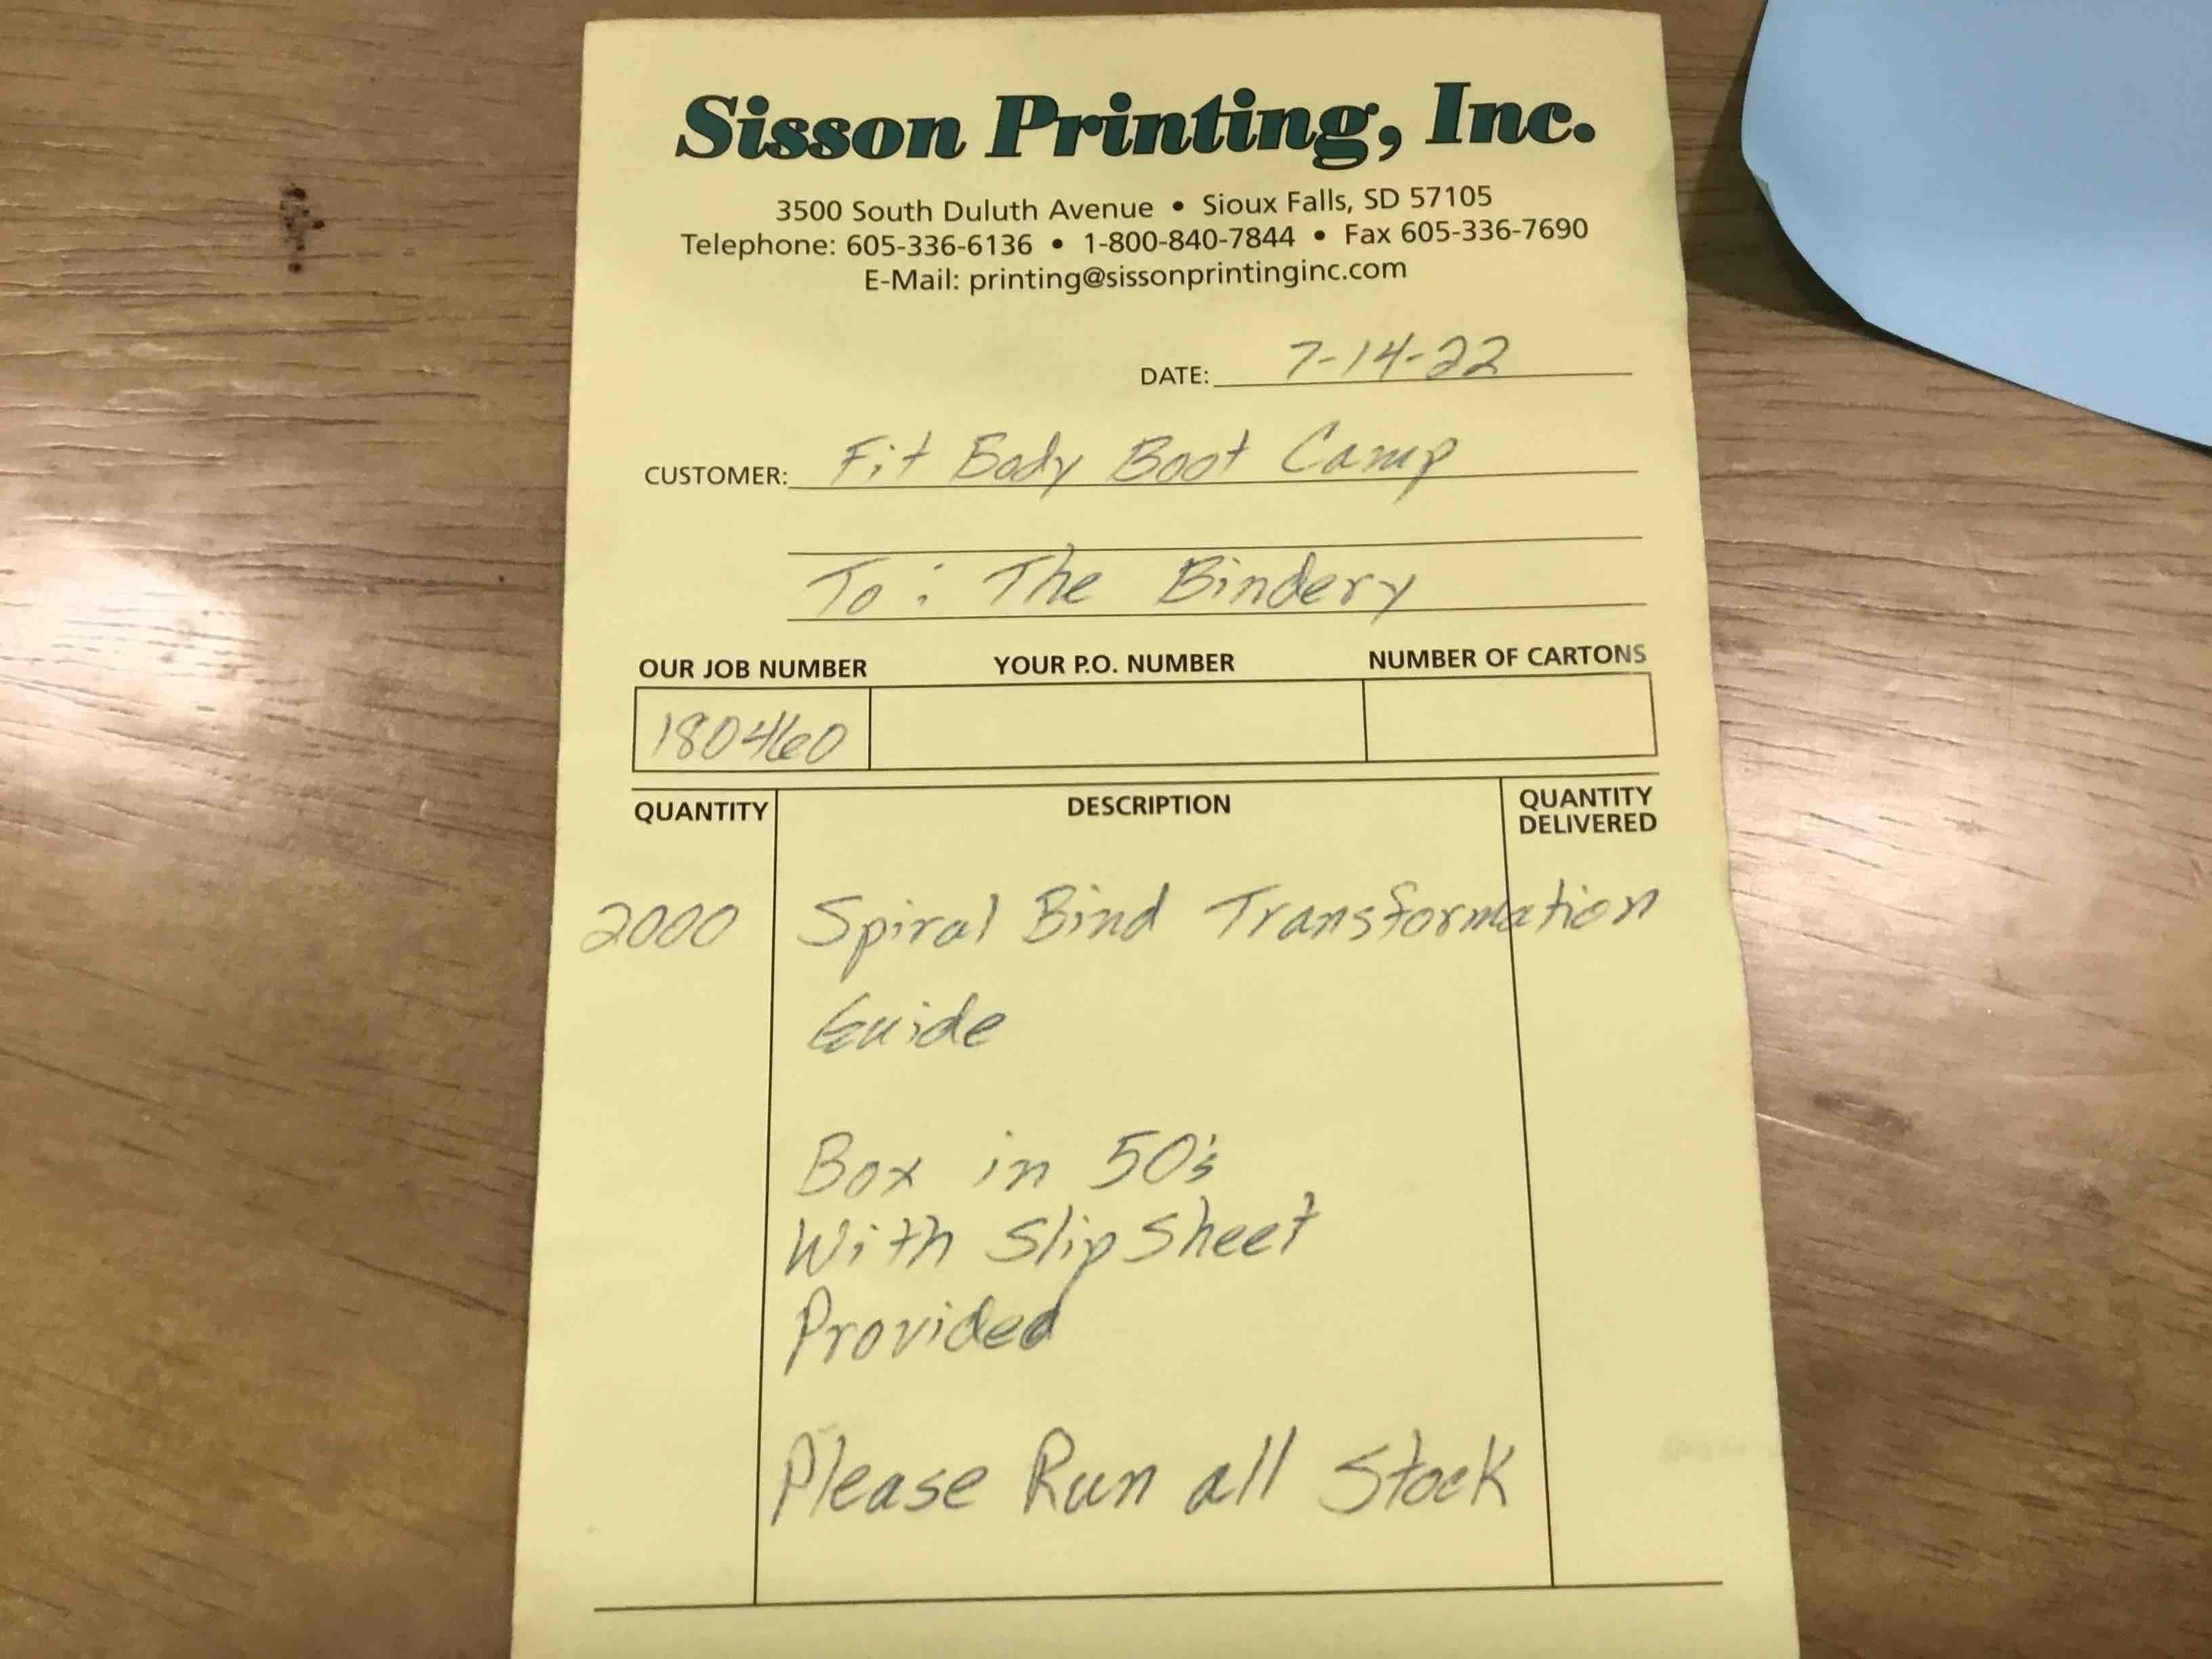 Sisson Printing, Inc.
3500 South Duluth Avenue • Sioux Falls, SD 57105
Telephone: 605-336-6136 • 1-800-840-7844 • Fax 605-336-7690
E-Mail: printing@sissonprintinginc.com
DATE: 7-14-22
CUSTOMER: Fit Body Boot Camp
To: The Bindery
OUR JOB NUMBER YOUR P.O. NUMBER NUMBER OF CARTONS
180460
QUANTITY DESCRIPTION QUANTITY DELIVERED
2000 Spiral Bind Transformation
Guide
Box in 50's
With Slip Sheet
Provided
Please Run all Stock